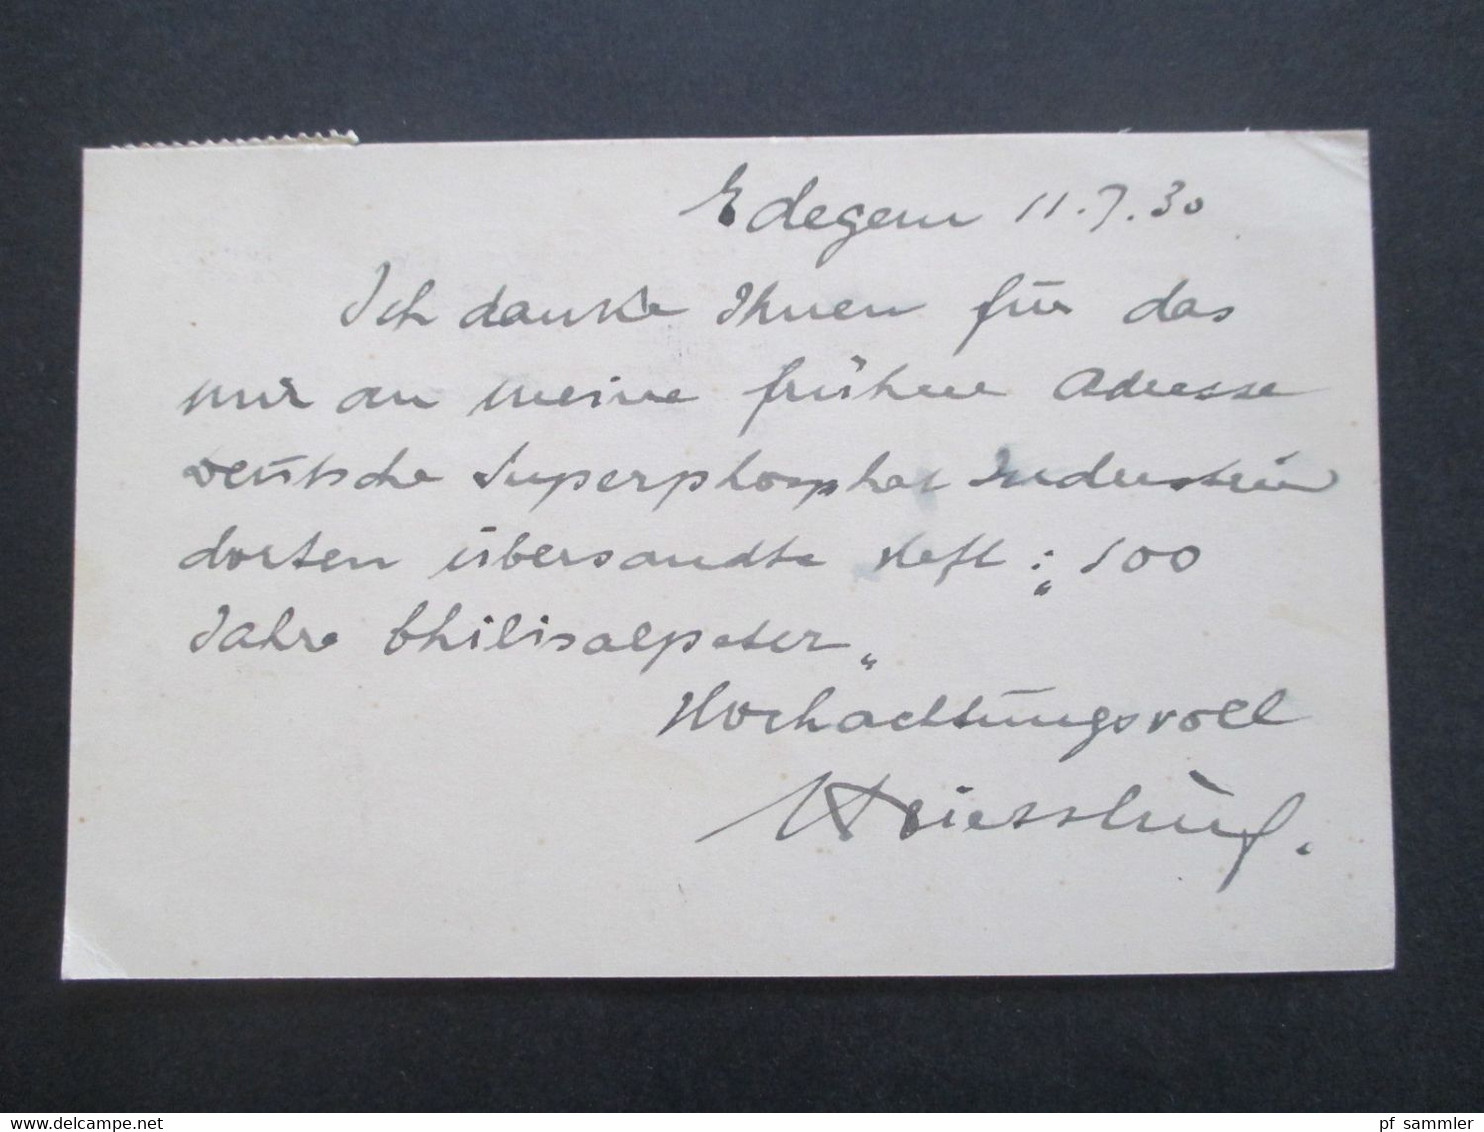 Edegem 11.7.30
Ich danke Ihnen für das
mir an meine frühere Adresse
deutsche Superphosphat Industrie
dorten übersandte Heft: „100
Jahre Chilisalpeter„
Hochachtungsvoll
www.delcampe.net
pf sammler